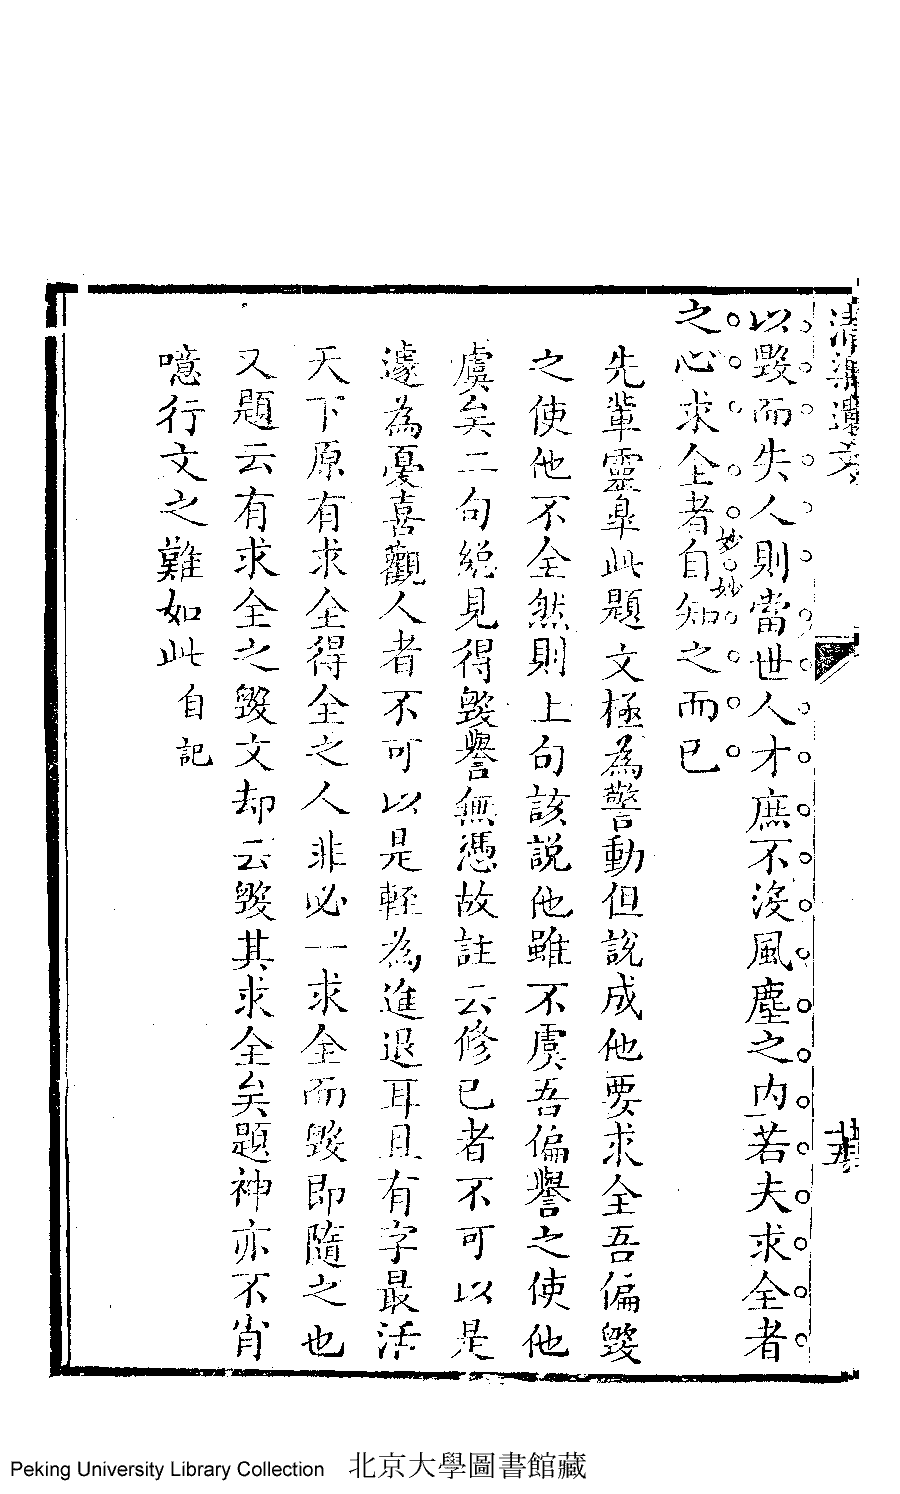 以毀而失人則當世人才庶不沒風塵之内若夫求全者
之心求全者自知之而已
妙妙
先輩靈臯此題文極為警動但說成他要求全吾偏毀
之使他不全然則上句該說他雖不虞吾偏譽之使他
虞矣二句總見得毀譽無憑故註云修已者不可以是
遽為憂喜觀人者不可以是輕為進退耳且有字最活
天下原有求全得全之人非必一求全而毀即隨之也
又題云有求全之毀文却云毀其求全矣題神亦不肖
噫行文之難如此 自記
Peking University Library Collection 北京大學圖書館藏